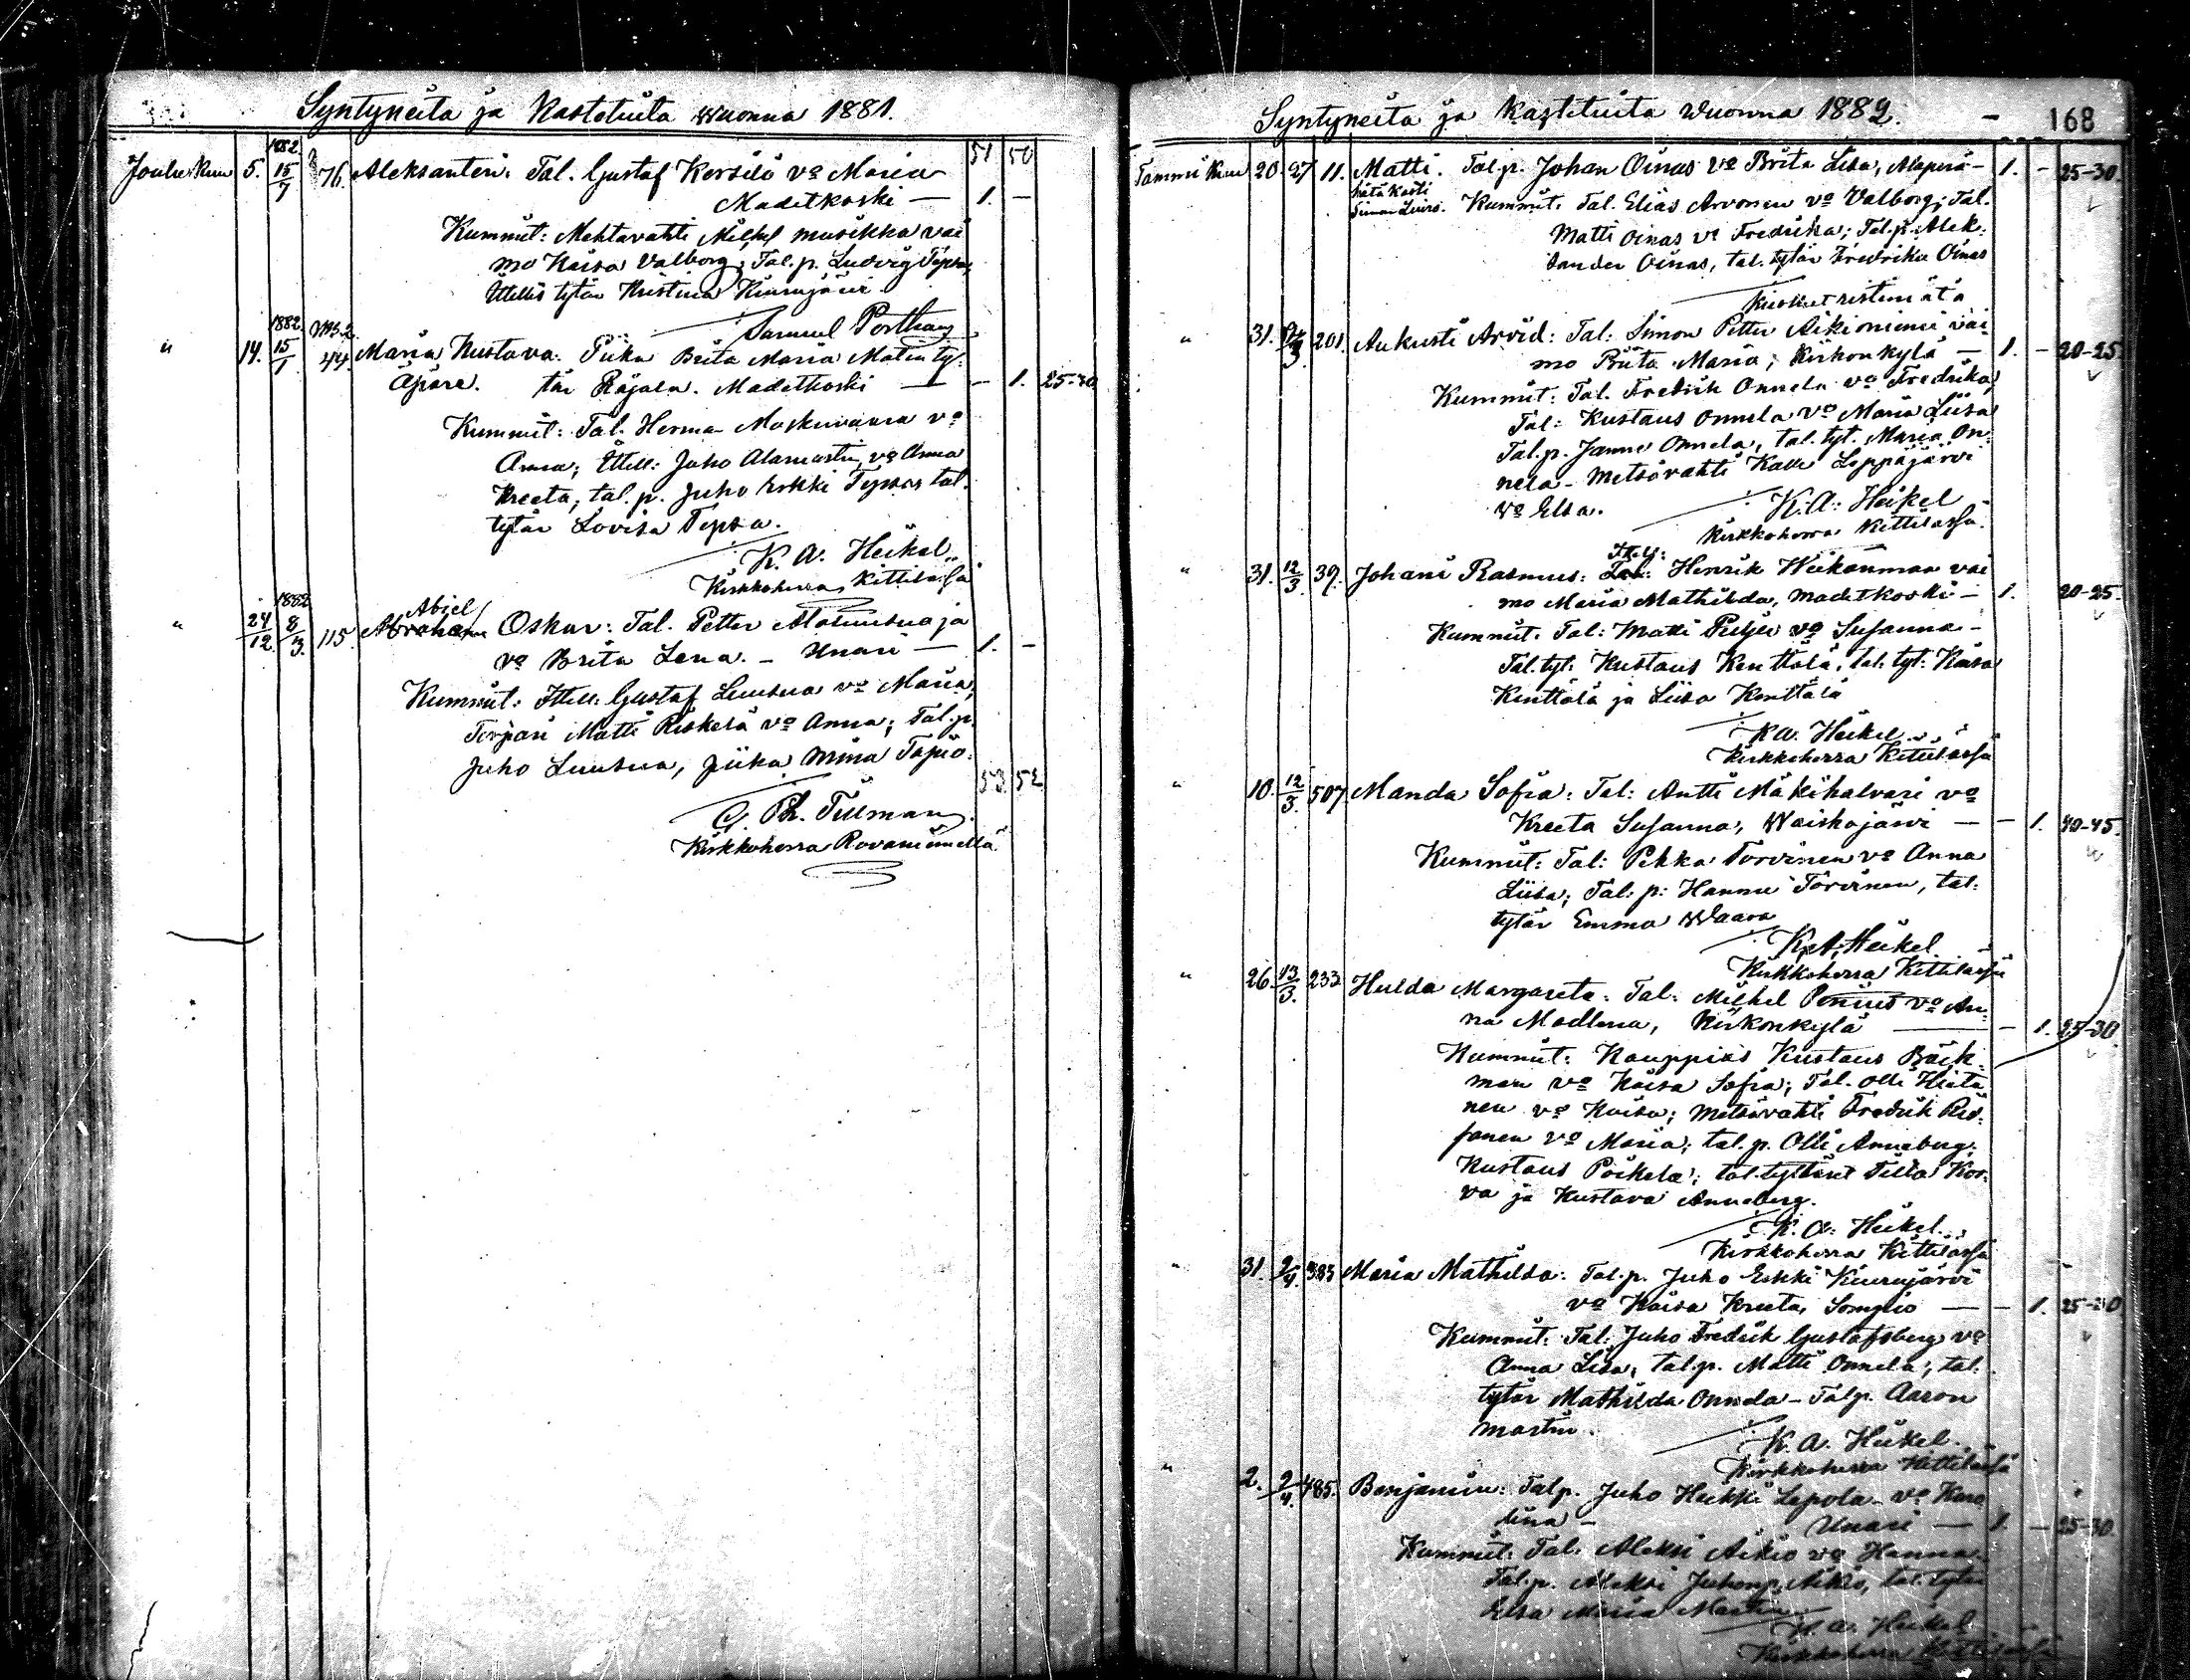 Syntyneitä ja Kastetuita Wuonna 1881.
1882 51 50
Joulu Kuu 5. 15/7 76. Aleksanteri. Tal. Gustaf Kersilö vo Maria
Madetkoski — 1. —
Kummit: Mehtävahti Mikkel Musikka vai
mo Kaisa Valborg; Tal. p. Ludvig Tepsa,
Itellis tytär Kristina Kiurujärvi
Samuel Porthan
" 14. 1882 15/1 44. Maria Kustava. Piika Brita Maria Matin ty-
Äpärä. tär Rajala. Madetkoski — — 1. 25-30
Kummit: Tal. Herman Moskuvaara vo
Anna; Itell: Juho Alamartin vo Anna
Kreeta, tal. p. Juho Erkki Tepsa tal.
tytär Lovisa Tepsa.
K. A. Heikel
Kirkkoherra Kittilässä
1882 Abiel
" 24/12 8/3. 115. Abraham Oskar: Tal. Petter Alaluusua ja
vo Brita Lena. — Unari — 1. —
Kummit: Itell. Gustaf Luusua vo Maria,
Torpari Matti Riskelä vo Anna; Tal. p.
Juho Luusua, piika Miina Tapio.
53 52
G. Ph. Tillman
Kirkkoherra Rovaniemellä

Syntyneitä ja Kastetuita Wuonna 1882. — 168
Tammi Kuu 20. 27 11. Matti. Tal. p. Johan Oinas vo Brita Lisa, Alaperä — 1. — 25-30.
hätä kasti Kummit: Tal. Elias Arvonen vo Valborg; Tal.
Matti Oinas vo Fredrika; Tal. p. Alek-
sander Oinas, tal. tytär Fredrika Oinas
" 31. 201. Aukusti Arvid: Tal: Simon Petter Aikioniemi vai
mo Briita Maria; Kirkonkylä — 1. — 20-25.
Kummit: Tal. Fredrik Onnela vo Fredrika,
Tal: Kustaus Onnela vo Maria Liisa
Tal. p. Janne Onnela, tal. tyt. Maria On-
nela — Metsävahti Kalle Leppäjärvi
vo Elsa.
K. A. Heikel
Kirkkoherra Kittilässä.
Itell:
" 31. 12/3 39. Johani Rasmus: Tal: Henrik Wiekanmaa vai
mo Maria Mathilda, Madetkoski — 1. 20-25.
Kummit: Tal: Matti Putjer vo Susanna —
Tal. tyt: Kustaus Kenttälä, tal. tyt: Kaisa
Kenttälä ja Liisa Kenttälä
K A. Heikel
Kirkkoherra Kittilässä
" 10. 12/3. 507 Manda Sofia: Tal: Antti Mäkihalvari vo
Kreeta Susanna, Waiskojärvi — — 1. 40-45.
Kummit: Tal: Pekka Torvinen vo Anna
Liisa; Tal: p: Hannu Torvinen, tal:
tytär Emma Waara
K. A. Heikel
Kirkkoherra Kittilässä
" 26. 13/3. 233 Hulda Margareta: Tal: Mikkel Penius vo An-
na Madlena, Kirkonkylä — — 1. 25-30
Kummit: Kauppias Kustaus Bäck-
man vo Kaisa Sofia; Tal. Olli Hieta
nen vo Kaisa; Metsävahti Fredrik Riis-
sanen vo Maria; tal. p. Olli Anneberg,
Kustaus Poikela; tal. tyttäret Tilta Kor-
va ja Kustava Anneberg.
K. A. Heikel.
Kirkkoherra Kittilässä
" 31. 2/4. 383 Maria Mathilda: Tal. p. Juho Erkki Kiurujärvi
vo Kaisa Kreeta, Sompio — — 1. 25-30
Kummit: Tal: Juho Fredrik Gustafsberg vo
Anna Lisa, tal. p. Matti Onnela; tal.
tytär Mathilda Onnela — Tal p. Aaron
Martin.
K. A. Heikel.
Kirkkoherra Kittilässä
" 2. 2/4. 485. Benjamin: Tal p. Juho Heikki Lepola — vo Karo
lina — Unari — 1. — 25-30.
Kummit: Tal: Aleksi Aikio vo Hanna
Tal. p. Aleksi Juhonp. Aikio, tal. tytär
Elsa Maria Martin
K. A. Heikel
Kirkkoherra Kittilässä